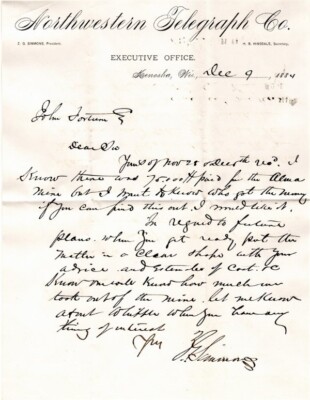 Northwestern Telegraph Co.
Z. G. SIMMONS, President.
H. B. HINSDALE, Secretary.
EXECUTIVE OFFICE.
Kenosha, Wis, Dec 9 1884
John
Dear Sir
Yours of Nov 28 & Dec 4th recd. I
Know there was 75.000 # paid for the Alma
Mine but I want to Know who got the money
if you can find this out. I would like it.
In regard to future
plans. when you get ready put the
matter in a clear shape with your
advice and Estimates of Cost. &c
Know much we
took out of the mine. let me Know
about when you have any
thing of interest
Yrs
Z G Simmons